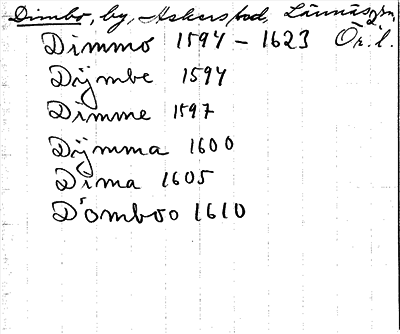 Dimbo, by, Askers sod, Lännäs sn,
Ör. l.
Dimmo 1594 - 1623
Dijmbe 1594
Dimme 1597
Dijmma 1600
Dima 1605
Domboo 1610